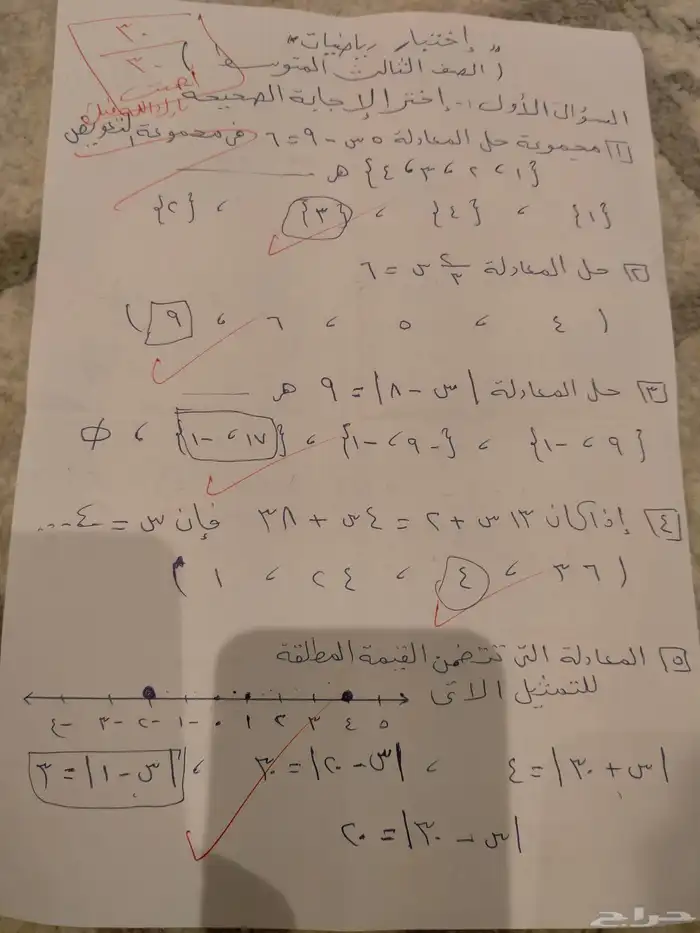 "إختبار رياضيات"
(الصف الثالث المتوسط)
٣٠
٣٠
السؤال الأول :- إختر الإجابة الصحيحة
١) مجموعة حل المعادلة ٥س - ٩ = ٦ في مجموعة التعويض
{١ ، ٢ ، ٣ ، ٤} هـ ــــــــ
{١} ، {٤} ، {٣} ، {٢}
٢) حل المعادلة ٢/٣ س = ٦
( ٤ ، ٥ ، ٦ ، ٩ )
٣) حل المعادلة |س - ٨| = ٩ هـ ــــــــ
{٩ ، -١} ، {-٩ ، -١} ، {١٧ ، -١} ، Φ
٤) إذا كان ١٣س + ٢ = ٤س + ٣٨ فإن س = ٤
( ٣٦ ، ٤ ، ٢٤ ، ١ )
٥) المعادلة التي تتضمن القيمة المطلقة
للتمثيل الاتى
-٤ -٣ -٢ -١ ٠ ١ ٢ ٣ ٤ ٥
|س + ٣٠| = ٤ ، |س - ٢٠| = ٣٠ ، |س - ١| = ٣
|س - ٣٠| = ٢٠
حراج